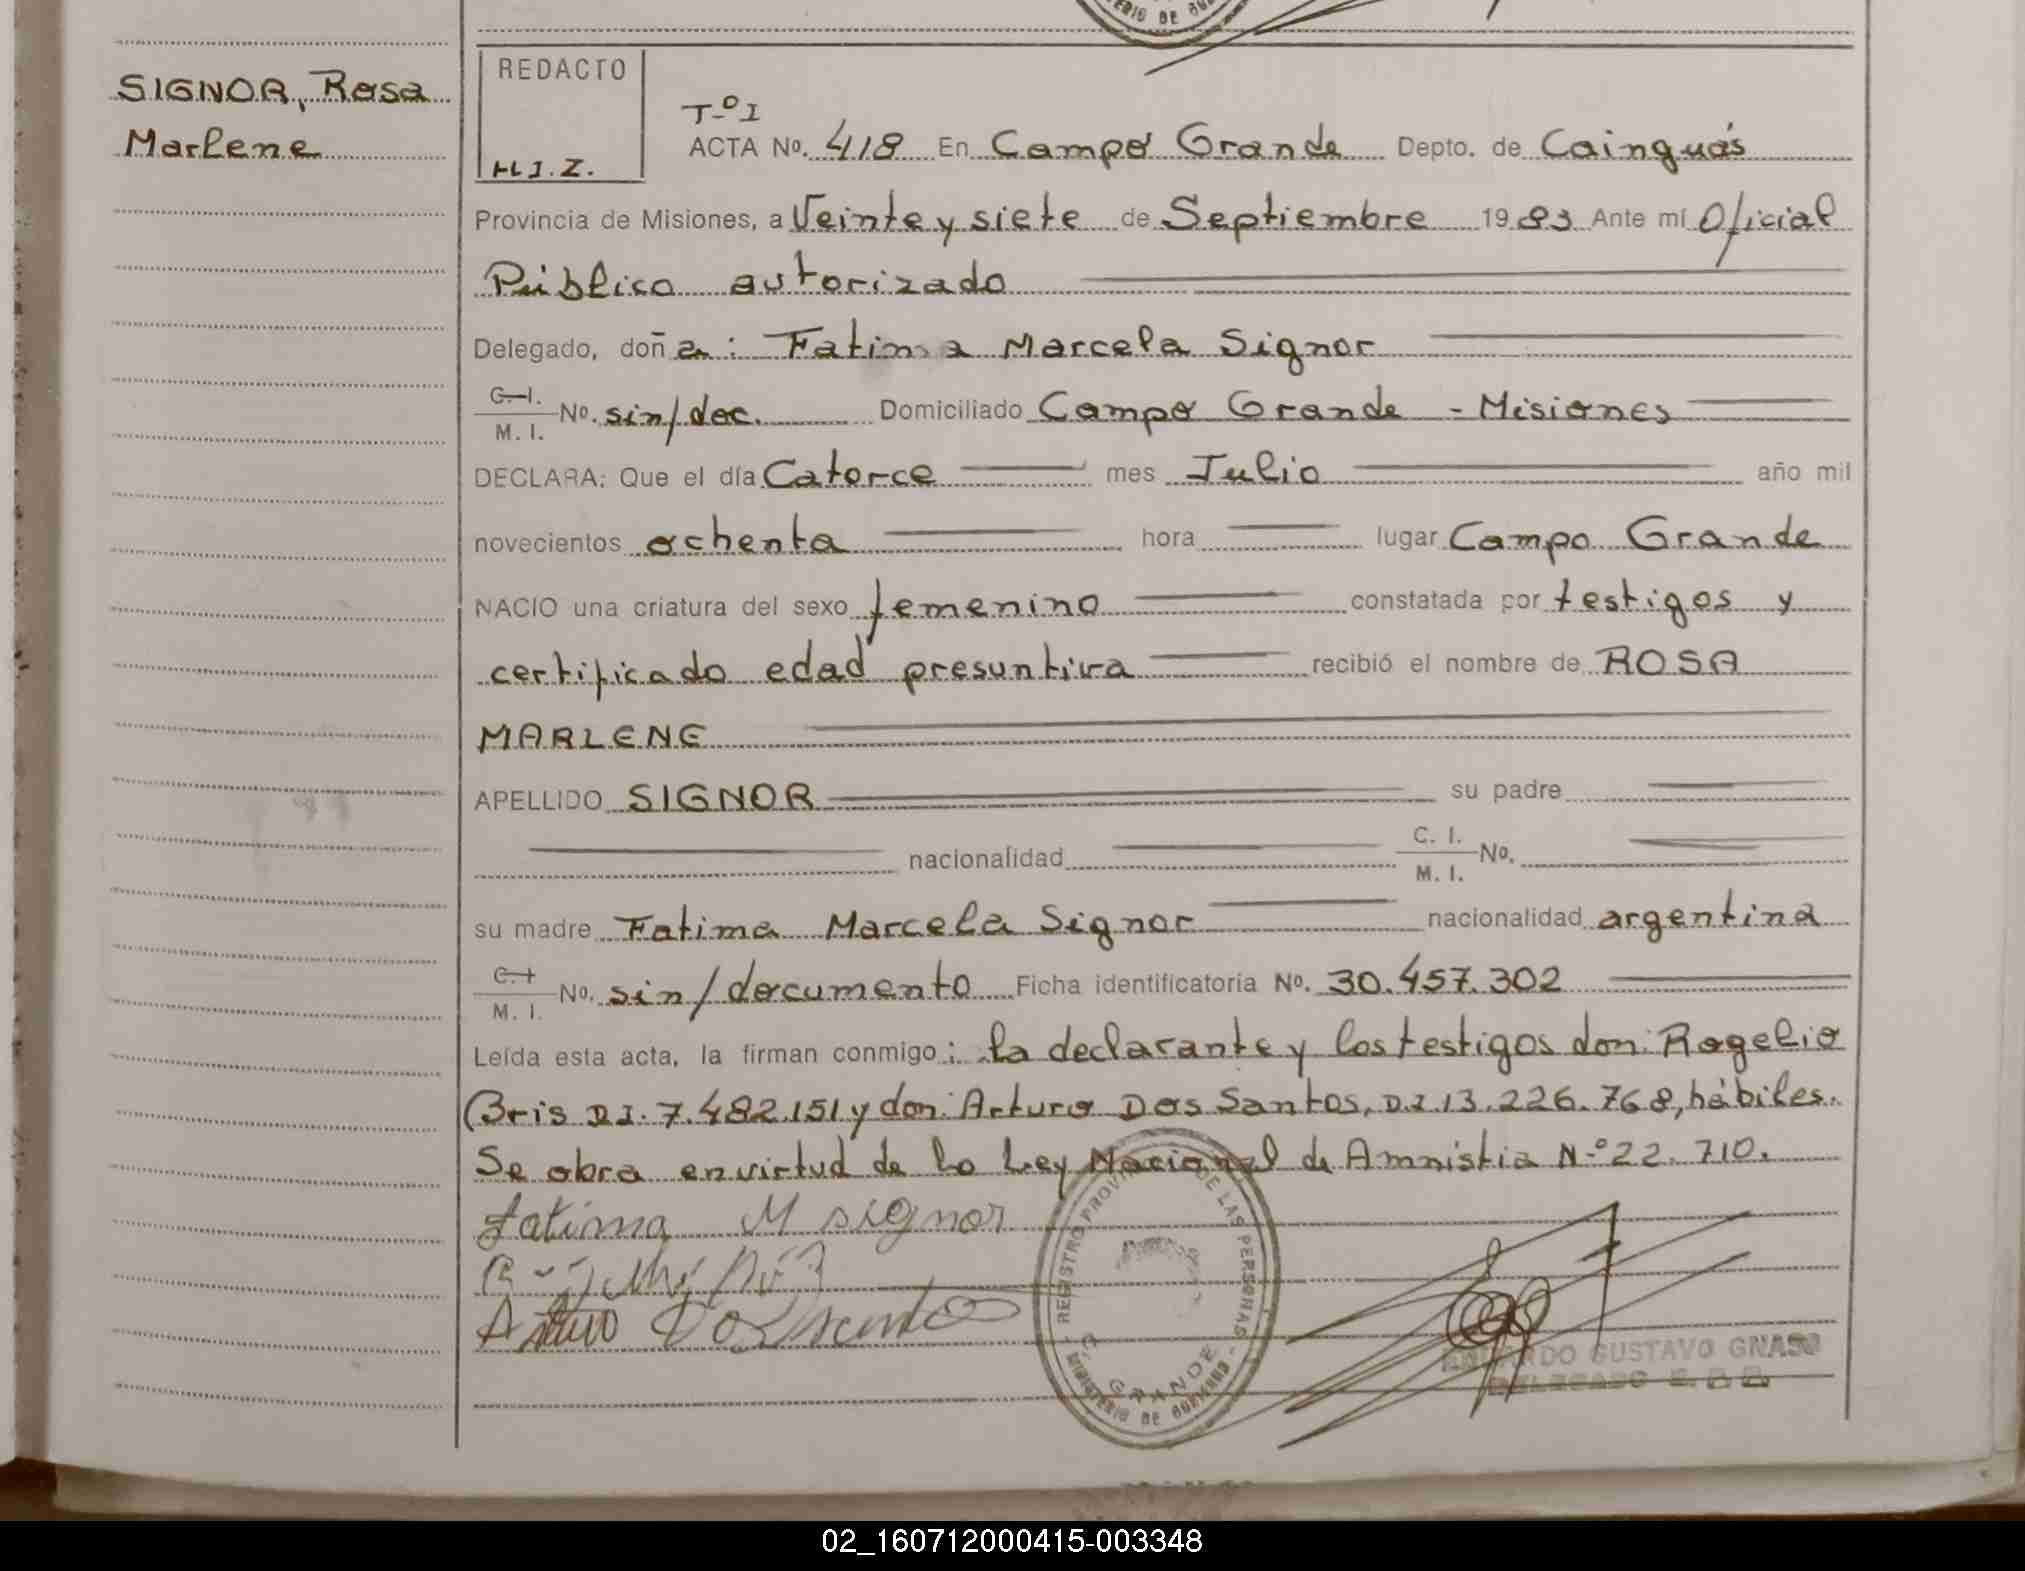 SIGNOR, Rosa
Marlene
REDACTO
H.I.Z.
Tº I
ACTA Nº. 418 En Campo Grande Depto. de Cainguás
Provincia de Misiones, a Veinte y siete de Septiembre 1983 Ante mí Oficial
Público autorizado
Delegado, doña: Fatima Marcela Signor
C.I. / M.I. Nº. sin/doc. Domiciliado Campo Grande - Misiones
DECLARA: Que el día Catorce mes Julio año mil
novecientos ochenta hora lugar Campo Grande
NACIO una criatura del sexo femenino constatada por testigos y
certificado edad presuntiva recibió el nombre de ROSA
MARLENE
APELLIDO SIGNOR su padre
nacionalidad C. I. / M. I. Nº.
su madre Fatima Marcela Signor nacionalidad argentina
C.I. / M. I. Nº. sin/documento Ficha identificatoria Nº. 30.457.302
Leída esta acta, la firman conmigo: la declarante y los testigos don: Rogelio
Bris D.I. 7.482.151 y don: Arturo Dos Santos, D.I. 13.226.768, hábiles.
Se obra en virtud de la Ley Nacional de Amnistia Nº 22.710.
fatima M signor
Arturo Dos Santos
REGISTRO PROVINCIAL DE LAS PERSONAS
C. GRANDE
MINISTERIO DE GOBIERNO
GUSTAVO GNASS
DELEGADO
02_160712000415-003348